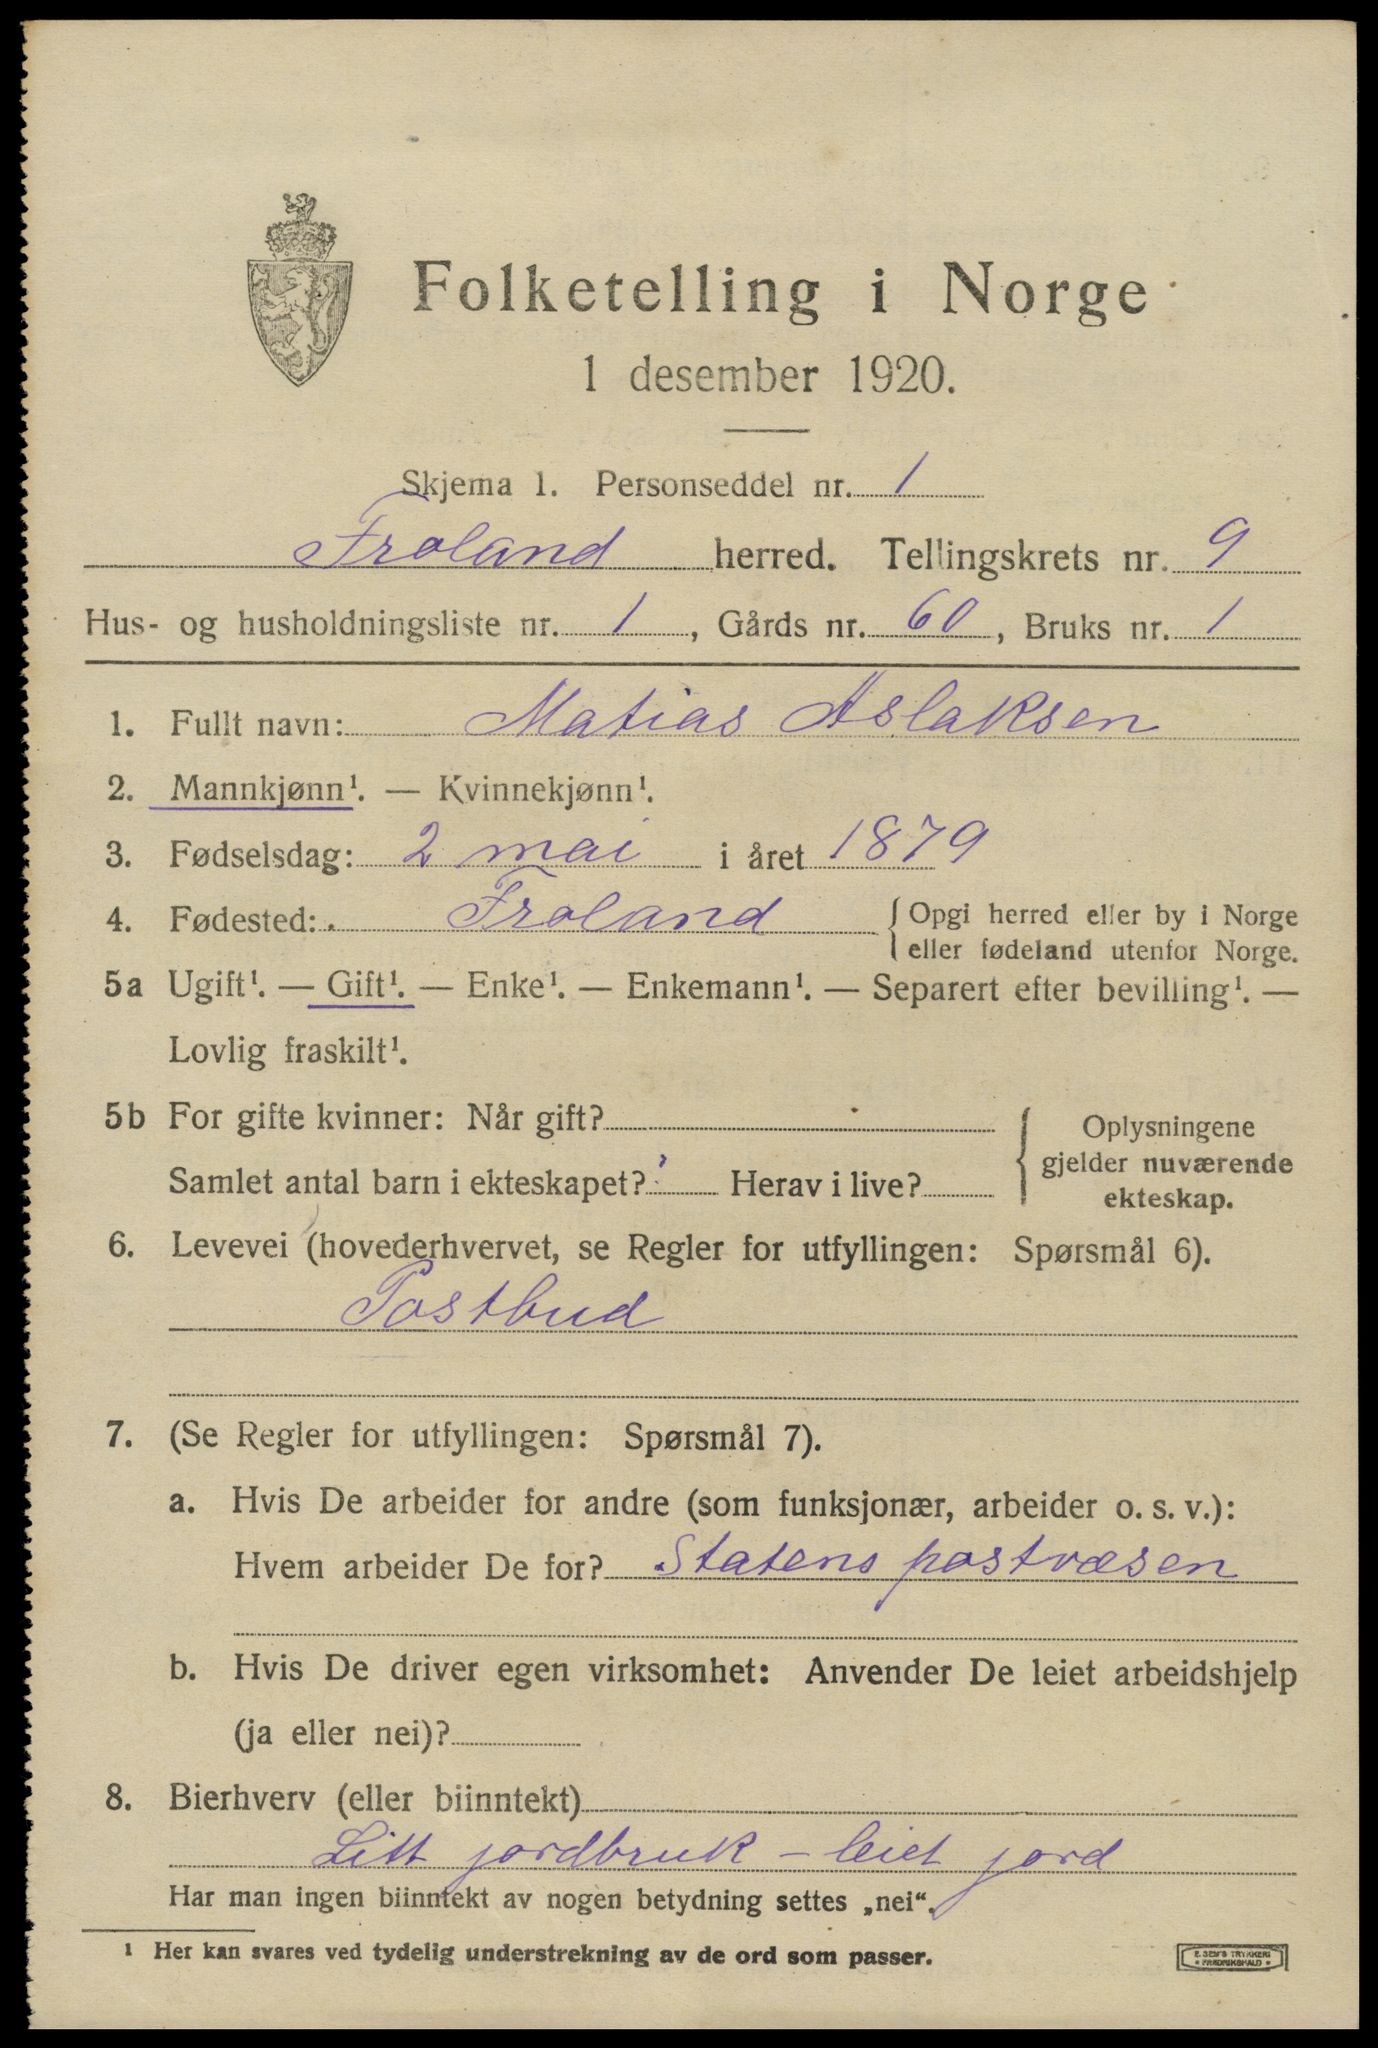 Folketelling i Norge
1 desember 1920.
Skjema 1. Personseddel nr. 1
Froland herred. Tellingskrets nr. 9
Hus- og husholdningsliste nr. 1, Gårds nr. 60, Bruks nr. 1
1. Fullt navn: Matias Aslaksen
2. Mannkjønn¹. — Kvinnekjønn¹.
3. Fødselsdag: 2 mai i året 1879
4. Fødested: Froland { Opgi herred eller by i Norge
eller fødeland utenfor Norge.
5a Ugift¹. — Gift¹. — Enke¹. — Enkemann¹. — Separert efter bevilling¹. —
Lovlig fraskilt¹.
5b For gifte kvinner: Når gift?
Samlet antal barn i ekteskapet? Herav i live?
{ Oplysningene
gjelder nuværende
ekteskap.
6. Levevei (hovederhvervet, se Regler for utfyllingen: Spørsmål 6).
Postbud
7. (Se Regler for utfyllingen: Spørsmål 7).
a. Hvis De arbeider for andre (som funksjonær, arbeider o. s. v.):
Hvem arbeider De for? Statens postvæsen
b. Hvis De driver egen virksomhet: Anvender De leiet arbeidshjelp
(ja eller nei)?
8. Bierhverv (eller biinntekt)
Litt jordbruk – leiet jord
Har man ingen biinntekt av nogen betydning settes „nei“.
¹ Her kan svares ved tydelig understrekning av de ord som passer.
E. SEM'S TRYKKERI
* FREDRIKSHALD *